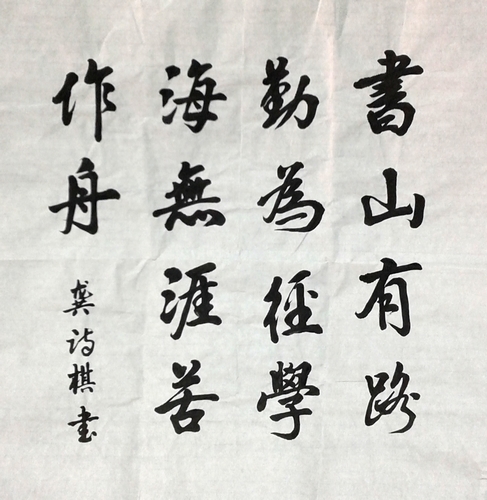 書山有路
勤為徑學
海無涯苦
作舟
龔诗棋书